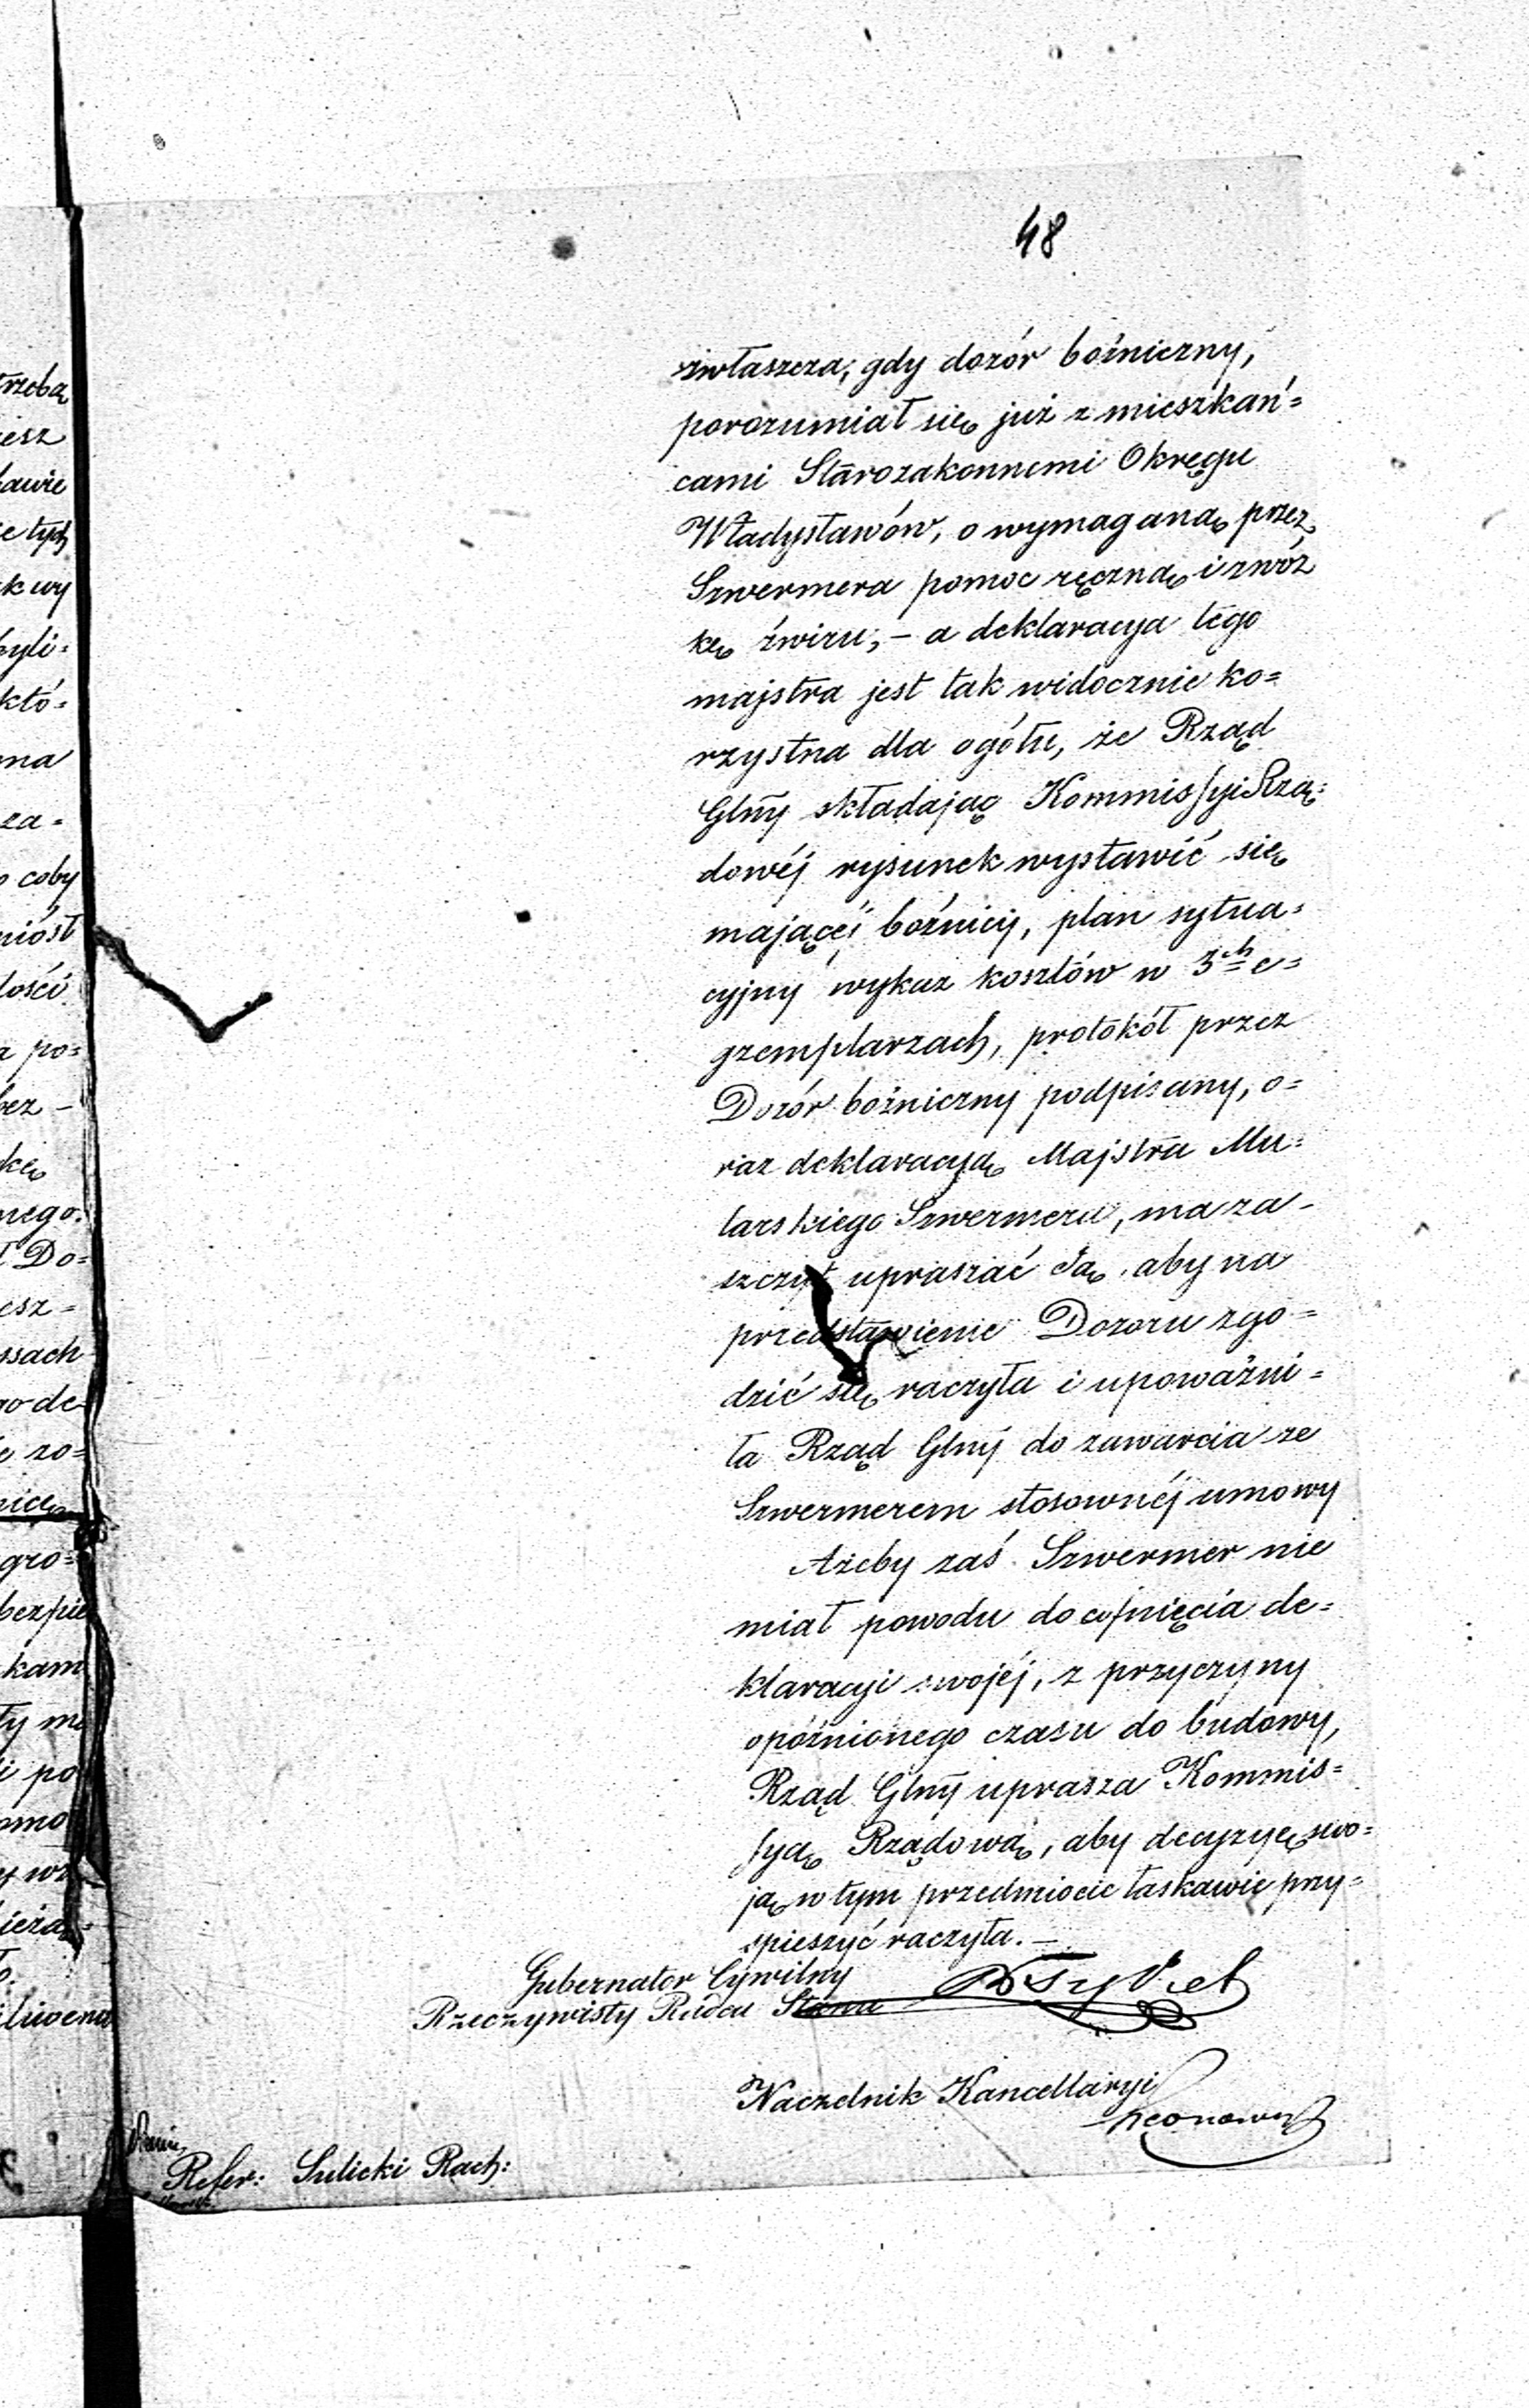 48
zwłaszcza, gdy dozór bóżniczny,
porozumiał się już z mieszkań=
cami Starozakonnemi Okręgu
Władysławów, o wymaganą przez
Szwermera pomoc ręczną i zwóz
kę żwiru, – a deklaracya tego
majstra jest tak widocznie ko=
rzystna dla ogółu, że Rząd
Glny składając Kommissyi Rzą=
dowéj rysunek wystawić się
mającéj bóżnicy, plan sytua=
cyjny wykaz kosztów w 3ch e=
gzemplarzach, protokół przez
Dozór bóżniczny podpisany, o=
raz deklaracyą Majstra Mu=
larskiego Szwermera, ma za-
szczyt upraszać Ją, aby na
przedstawienie Dozoru zgo=
dzić się raczyła i upoważni=
ła Rząd Glny do zawarcia ze
Szwermerem stosownéj umowy
Ażeby zaś Szwermer nie
miał powodu do cofnięcia de=
klaracyi swojéj, z przyczyny
opóźnionego czasu do budowy,
Rząd Glny uprasza Kommis=
syą Rządową, aby decyzyę swo=
ją w tym przedmiocie łaskawie przy=
spieszyć raczyła. –
Gubernator Cywilny
Rzeczywisty Radca Stanu
Naczelnik Kancellaryi
Refer: Sulicki Rach:
trzeba
iesz
ławie
e tych
k wy
byli=
któ=
ma
za=
o coby
niósł
lości
a po=
bez –
kę
nego
t Do=
esz=
ssach
o de
e zo=
nicę
gro=
bezpie
kam
ły
i po
omo